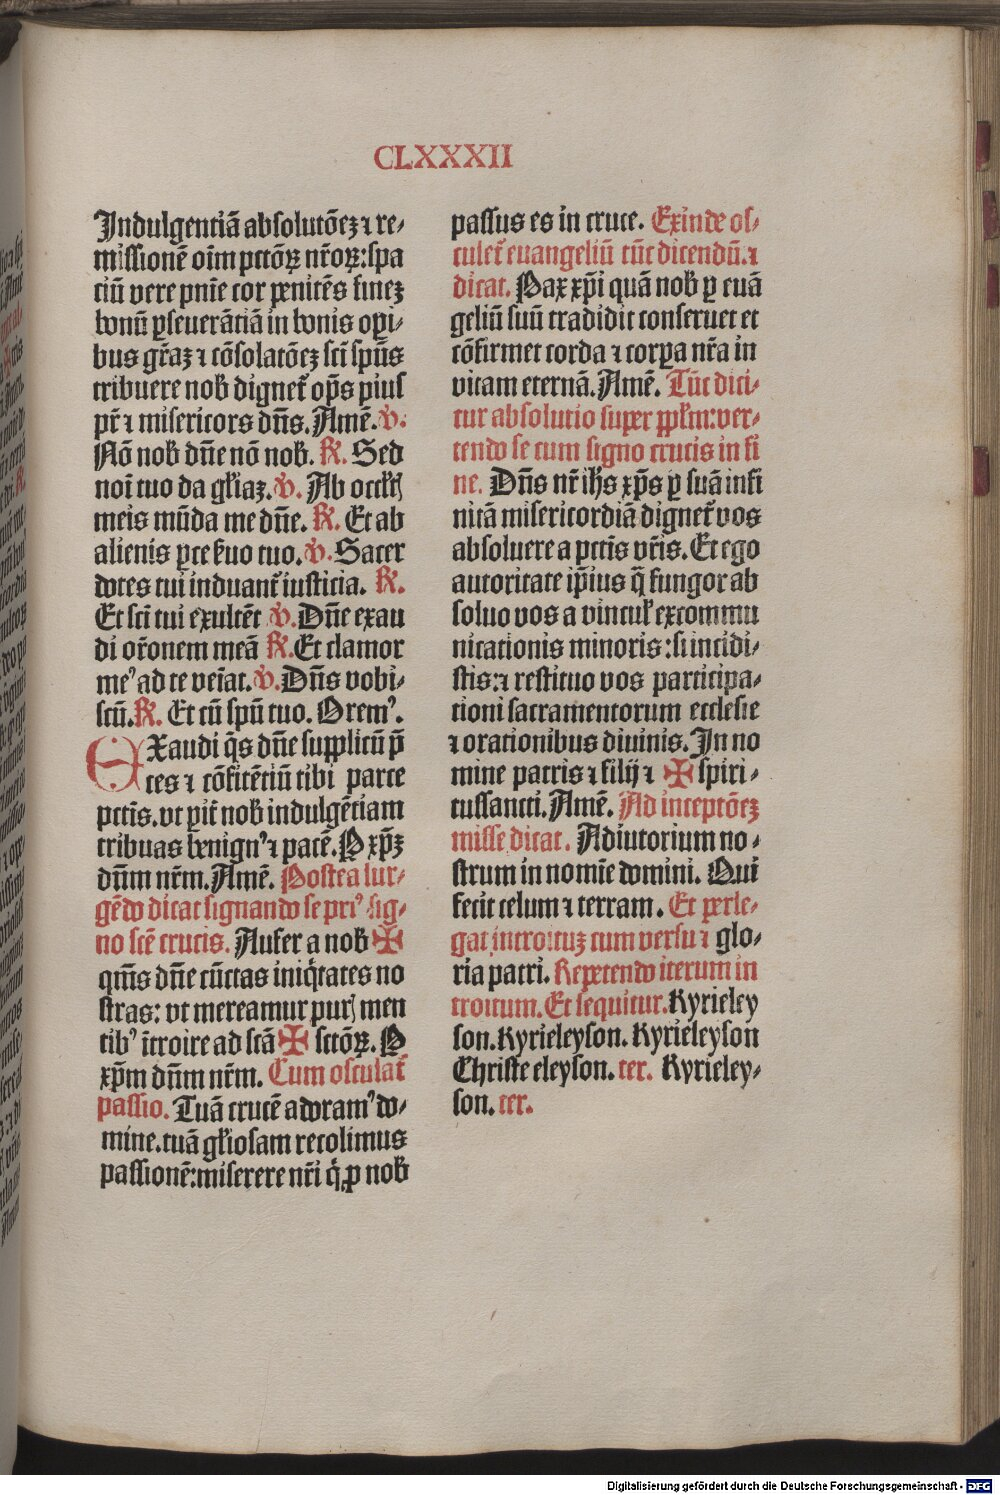 CLXXXII
Indulgentiā absolutōeꝫ ⁊ re⸗
missionē oīm pctōꝝ nr̄oꝝ: spa
ciū vere pnīe cor penitēs fineꝫ
bonū ꝑseuerātiā in bonis oꝑi⸗
bus gr̄aꝫ ⁊ cōsolatōeꝫ sct̄i spūs
tribuere nob̄ dignet᷑ op̄s pius
pr̄ ⁊ misericors dn̄s. Amē. ℣.
Nō nob̄ dn̄e nō nob̄. ℟. Sed
noī tuo da gl̄iaꝫ. ℣. Ab occl̄t
meis mūda me dn̄e. ℟. Et ab
alienis ꝑce ẜuo tuo. ℣. Sacer
dotes tui induant᷑ iusticia. ℟.
Et sct̄i tui exultēt ℣. Dn̄e exau
di or̄onem meā ℟. Et clamor
meꝰ ad te veīat. ℣. Dn̄s vobi⸗
scū. ℟. Et cū spū tuo. Oremꝰ.
EXaudi q̄s dn̄e supplicū p̄
ces ⁊ cōfitētiū tibi parce
pctīs. vt ꝑit᷑ nob̄ indulgētiam
tribuas benignꝰ ⁊ pacē. P xp̄ꝫ
dn̄m nr̄m. Amē. Postea sur⸗
gēdo dicat signando se priꝰ sig⸗
no scē crucis. Aufer a nob̄ ✠
qm̄s dn̄e cūctas iniq̇tates no
stras: vt mereamur puris men
tibꝰ ītroire ad scā ✠ sctōꝝ. P
xp̄m dn̄m nr̄m. Cum osculat᷑
passio. Tuā crucē adoramꝰ do⸗
mine. tuā gl̄iosam recolimus
passionē: miserere nr̄i q̇ ꝓ nob̄
passus es in cruce. Exinde os⸗
culet᷑ euangeliū tūc dicendū. ⁊
dicat. Pax xp̄i quā nob̄ ꝑ euā
geliū suū tradidit conseruet et
cōfirmet corda ⁊ corꝑa nr̄a in
vitam eternā. Amē. Tūc dici⸗
tur absolutio super ppl̄m: ver⸗
tendo se cum signo crucis in fi
ne. Dn̄s nr̄ ih̄s xp̄s ꝑ suā infi
nitā misericordiā dignet᷑ vos
absoluere a pctīs vr̄is. Et ego
autoritate ip̄ius q̄ fungor ab
soluo vos a vincul̄ excommu
nicationis minoris: si incidi⸗
stis: ⁊ restituo vos participa⸗
tioni sacramentorum ecclesie
⁊ orationibus diuinis. In no
mine patris ⁊ filij ⁊ ✠ spiri⸗
tussancti. Amē. Ad inceptōeꝫ
misse dicat. Adiutorium no⸗
strum in nomīe domini. Qui
fecit celum ⁊ terram. Et perle⸗
gat introituꝫ cum versu ⁊ glo⸗
ria patri. Repetendo iterum in
troitum. Et sequitur. Kyrieley
son. Kyrieleyson. Kyrieleyson
Christe eleyson. ter. Kyrieley⸗
son. ter.
Digitalisierung gefördert durch die Deutsche Forschungsgemeinschaft - DFG